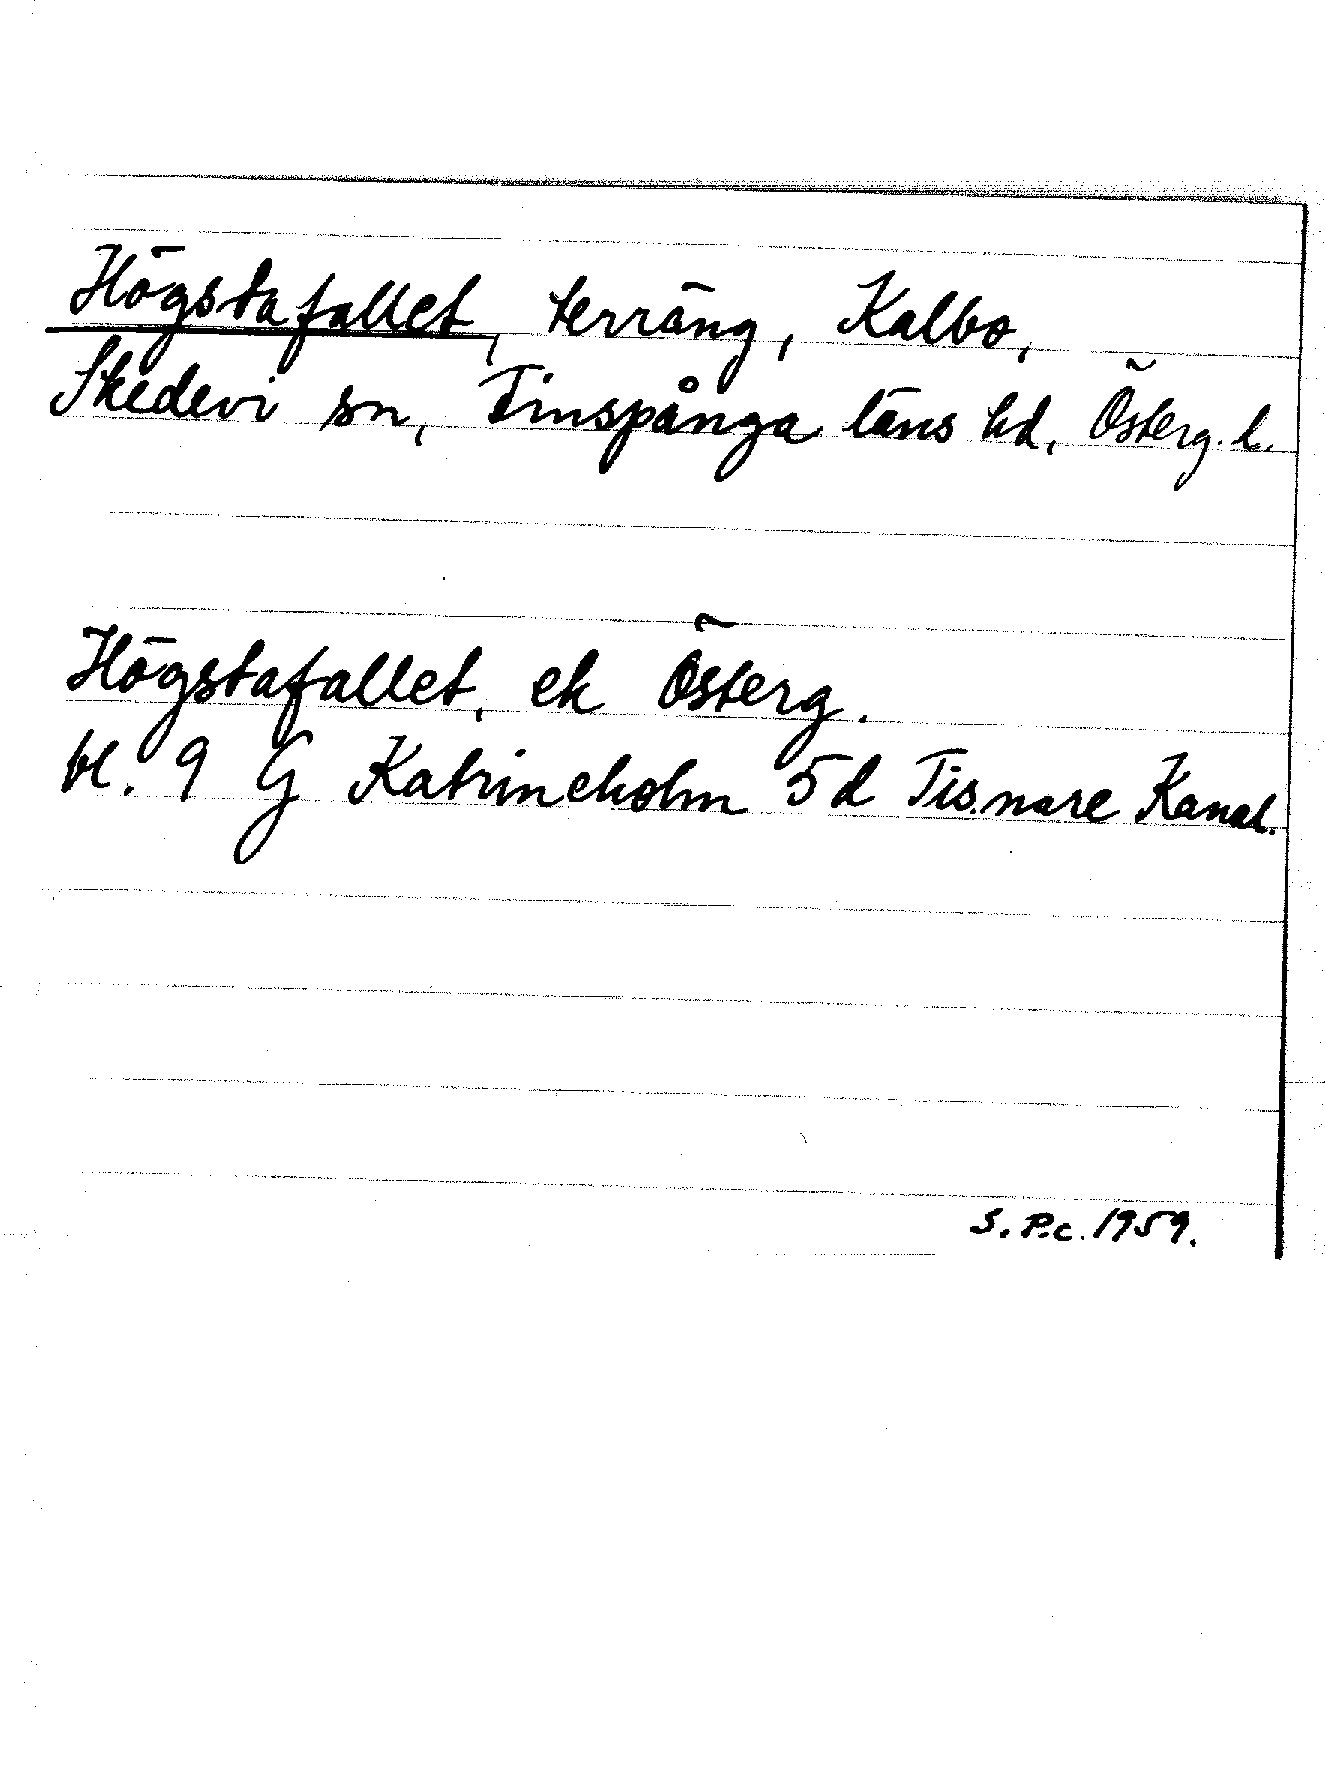 Högstafallet, terräng, Kalbo,
Skedevi sn, Finspånga läns hd, Österg. l.
Högstafallet, ek Österg.
bl. 9 G Katrineholm 5d Tisnare Kanal.
S. P.c. 1959.